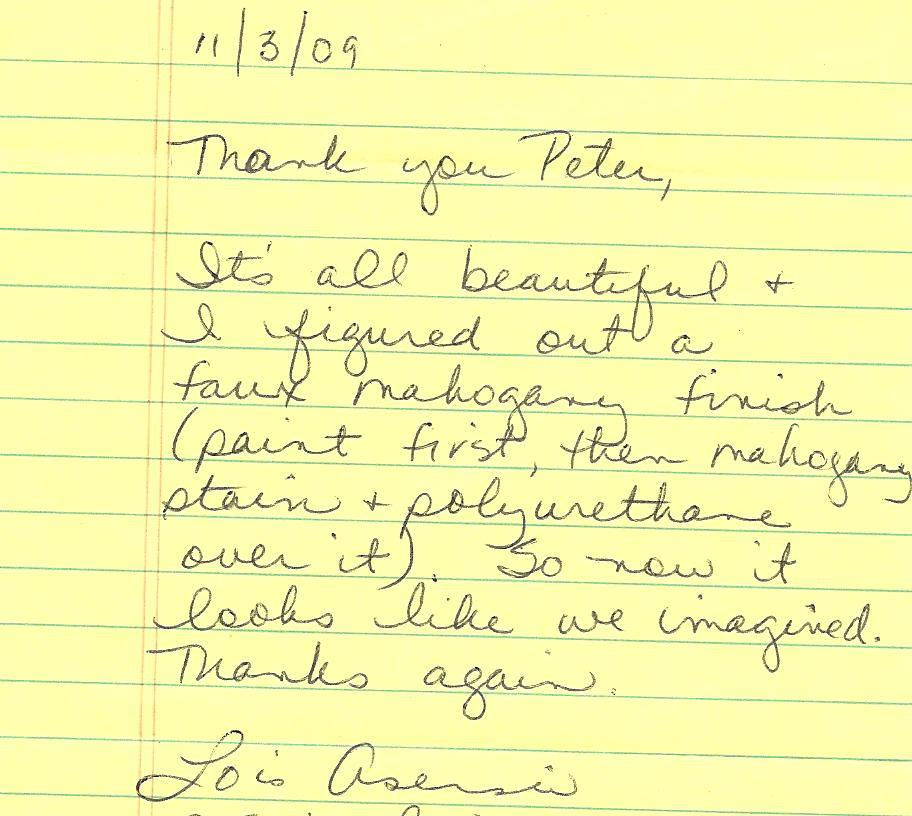 11/3/09
Thank you Peter,
It's all beautiful +
I figured out a
faux mahogany finish
(paint first, then mahogany
stain + polyurethane
over it). So now it
looks like we imagined.
Thanks again.
Lois